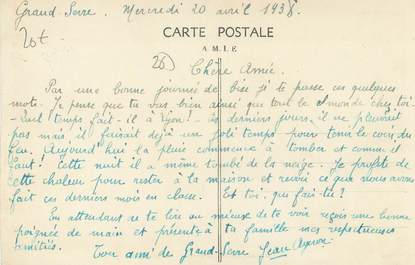 Grand-Serre. Mercredi 20 avril 1938.
20f
CARTE POSTALE
A.M.I.E
26) Chère Amie.
Par une bonne journée de bise je te passe ces quelques
mots. Je pense que tu vas bien ainsi que tout le monde chez toi.
- Quel temps fait-il à Lyon! - Ces derniers jours, il ne pleuvait
pas mais il faisait déjà un joli temps pour tenir le coin du
feu. Aujourd'hui la pluie commence à tomber et comme il
faut! Cette nuit il a même tombé de la neige. Je profite de
cette chaleur pour rester à la maison et revoir ce que nous avons
fait ces derniers mois en classe. Et toi, que fais-tu?
En attendant de te lire ou mieux de te voir reçois une bonne
poignée de main et présente à ta famille mes respectueuses
amitiés.
Ton ami de Grand-Serre Jean